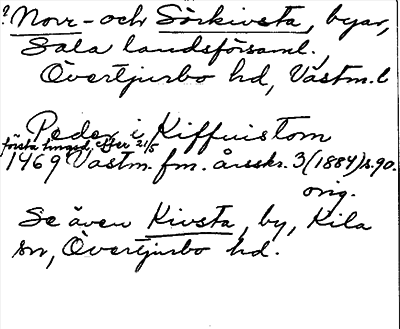 ? Norr- och Sörkivsta, byar,
Sala landsförsaml.,
Övertjurbo hd, Västm. l
Peder i Kiffuistom
första tinged. efter 21/5
1469 Västm. fm. årsskr. 3 (1884) s. 90.
orig.
Se även Kivsta, by, Kila
sn, Övertjurbo hd.